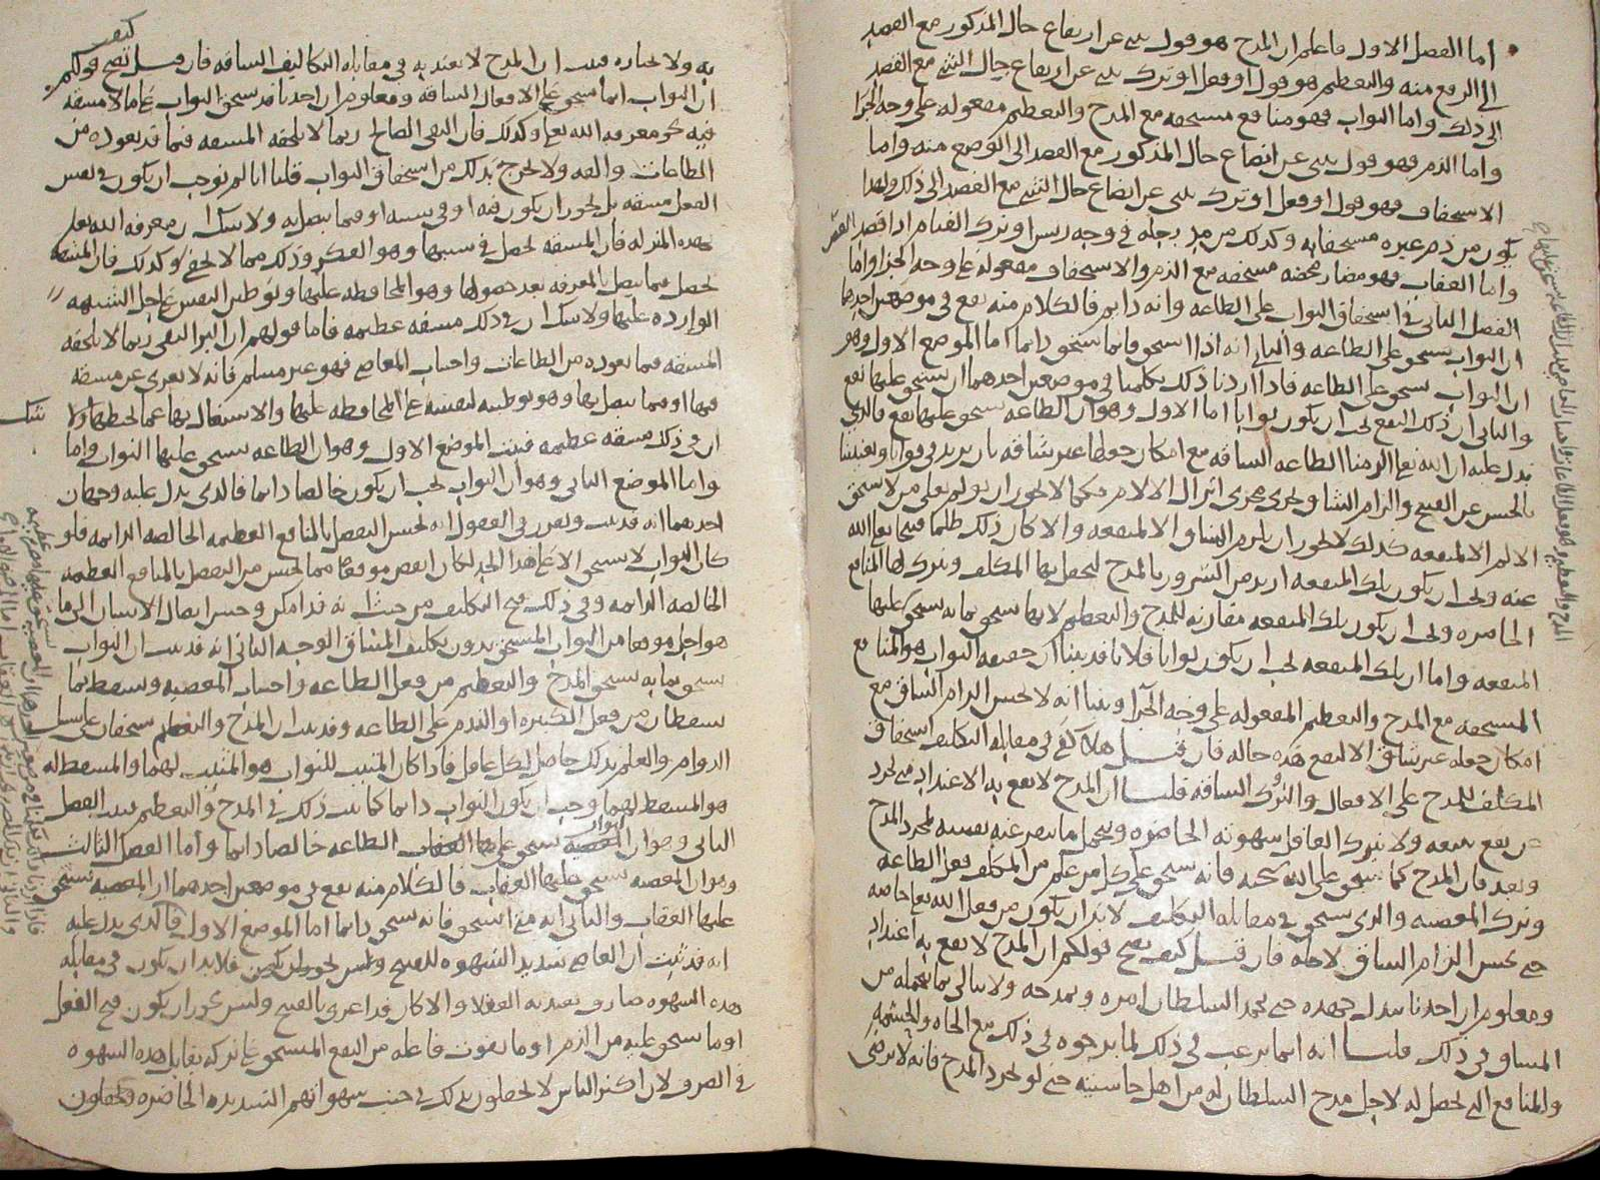 اما الفصل الاول فاعلم ان المدح هو قول ينبي عن ارتفاع حال المذكور مع القصد
الى الرفع منه والتعظيم هو قول او فعل او ترك ينبي عن ارتفاع حال الشي مع القصد
الى ذلك واما الثواب فهو منافع مستحقه مع المدح والتعظيم مفعوله على وجه الجزا
واما الذم فهو قول ينبي عن اتضاع حال المذكور مع القصد الى الوضع منه واما
الاستخفاف فهو قول او فعل او ترك ينبي عن اتضاع حال الشي مع القصد الى ذلك ولهذا
يكون من ذم غيره مستخفا به وكذلك من مد رجله في وجه رييس او ترك القيام اذا قصد
واما العقاب فهو مضار محضه مستحقه مع الذم والاستخفاف مفعوله على وحه الجزا واما
الفصل الثاني في استحقاق الثواب على الطاعه وانه دايم فالكلام منه يقع في موضعين احدهما
ان الثواب يستحق على الطاعه والثاني انه اذا استحق فانما يستحق دايما اما الموضع الاول وهو
ان الثواب يستحق على الطاعه فاذا اردنا ذلك تكلمنا في موضعين احدهما ان يستحق عليها نفع
والثاني ان ذلك النفع يجب ان يكون ثوابا اما الاول وهو ان الطاعه يستحق عليها نفع فالذي
يدل عليه ان الله تعالى الزمنا الطاعه الشاقه مع امكان جعلها غير شاقه بان يزيد في قوانا ويغنينا
بالحسن عن القبيح والزام الشاق يجري مجرى انزال الالام فكما لا يجوز ان يولم تعالى من لا يستحق
الالم الا لمنفعه كذلك لا يجوز ان يلزم الشاق الا لمنفعه والا كان ذلك ظلما قبيحا تعالى الله
عنه ويجب ان يكون تلك المنفعه ازيد من السرور بالمدح ليحفل بها المكلف ويترك لها المنافع
الحاضره ويجب ان يكون تلك المنفعه مقارنه للمدح والتعظيم لانها تستحق بما به يستحق عليها
المنفعه واما ان تلك المنفعه يجب ان يكون ثوابا فلانا قد بينا ان حقيقه الثواب هو المنافع
المستحقه مع المدح والتعظيم المفعوله على وجه الجزا وبينا انه لا يحسن الزام الشاق مع
امكان جعله غير شاق الا لنفع هذه حاله فان قيل هلا كفى في مقابله التكليف استحقاق
المكلف للمدح على الافعال والتروك الشاقه قلنا ان المدح لا يقع به الاعتداد متى تجرد
عن نفع يتبعه ولا يترك العاقل شهوته الحاضره ويتحمل ما ينفر عنه نفسه لمجرد المدح
وبعد فان المدح كما يستحق على الله تعالى فانه يستحق على كل من علم من المكلف فعل الطاعه
وترك المعصيه والذي يستحق في مقابله التكليف لا بد ان يكون من فعل الله تعالى خاصه
حتى يحسن الزام الشاق لاجله فان قيل كيف يصح قولكم ان المدح لا يقع به اعتداد
ومعلوم ان احدنا يبذل جهده حتى يحمد السلطان امره ويمدحه ولا يبالي بما يتحمله من
المشاق في ذلك قلنا انه انما يرغب في ذلك لما يرجوه في ذلك مع الجاه والحشمه
والمنافع التي تحصل له لاجل مدح السلطان له من اهل حاشيته حتى لو تجرد المدح فانه لا يرضى
به ولا يختاره فثبت ان المدح لا يعتد به في مقابله التكاليف الشاقه فان قيل كيف يصح قولكم
ان الثواب انما يستحق على الافعال الشاقه ومعلوم ان احدنا قد يستحق الثواب على ما لا مشقه
فيه كمعرفه الله تعالى وكذلك فان التقي الصالح ربما لا تلحقه المشقه فيما قد تعوده من
الطاعات والفه ولا يخرج بذلك من استحقاق الثواب قلنا انا لم نوجب ان يكون في نفس
الفعل مشقه بل يجوز ان يكون فيه او في سببه او فيما يتصل به ولا شك ان معرفه الله تعالى
بهذه المنزله فان المشقه تحصل في سببها وهو الفكر وذلك مما لا يخفى وكذلك فان المشقه
تحصل فيما يتصل بالمعرفه بعد حصولها وهو المحافظه عليها وتوطين النفس على حل الشبهه
الوارده عليها ولا شك ان في ذلك مشقه عظيمه فاما قولهم ان البر التقي ربما لا تلحقه
المشقه فيما تعوده من الطاعات واجتناب المعاصي فهو غير مسلم فانه لا يعرى عن مشقه
فيها او فيما يتصل بها وهو توطينه لنفسه على المحافظه عليها والاشتغال بها عما يحبطها ولا شك
ان في ذلك مشقه عظيمه فثبت الموضع الاول وهو ان الطاعه يستحق عليها الثواب واما
واما الموضع الثاني وهو ان الثواب يجب ان يكون خالصا دايما فالذي يدل عليه وجهان
احدهما انه قد ثبت وتقرر في العقول انه يحسن التفضل بالمنافع العظيمه الخالصه الدايمه فلو
كان الثواب لا يستحق الا على هذا الحد لكان انقص موقعا مما يحسن من التفضل بالمنافع العظيمه
الخالصه الدايمه وفي ذلك قبح التكليف من حيث انه قد امكن وحسن ايصال الانسان الى ما
هو اجل موقعا من الثواب المستحق بدون تكليف المشاق الوجه الثاني انه قد ثبت ان الثواب
يستحق بما به يستحق المدح والتعظيم من فعل الطاعه واجتناب المعصيه ويسقط بما
يسقطان من فعل الكبيره او الندم على الطاعه وقد ثبت ان المدح والتعظيم يستحقان على سبيل
الدوام والعلم بذلك حاصل لكل عاقل فاذا كان المثبت للثواب هو المثبت لهما والمسقط له
هو المسقط لهما وجب ان يكون الثواب دايما كما ثبت ذلك في المدح والتعظيم فثبت الفصل
الثاني وهو ان ثواب الطاعه خالصا دايما واما الفصل الثالث
وهو ان المعصيه يستحق عليها العقاب فالكلام منه يقع في موضعين احدهما ان المعصيه يستحق
عليها العقاب والثاني انه متى استحق فانه يستحق دايما اما الموضع الاول فالذي يدل عليه
انه قد ثبت ان العاصي شديد الشهوه للقبيح فلا بد ان يكون في مقابله
هذه الشهوه صارف يعتد به العقلا والا كان قد اغري بالقبيح وليس يجوز ان يكون قبح الفعل
او ما يستحق عليه من الذم او ما يفوت فاعله من النفع المستحق على تركه يقابل هذه الشهوه
في الصرف لان اكثر الناس لا يحفلون بذلك في جنب شهواتهم الشديده الحاضره ويجعلون